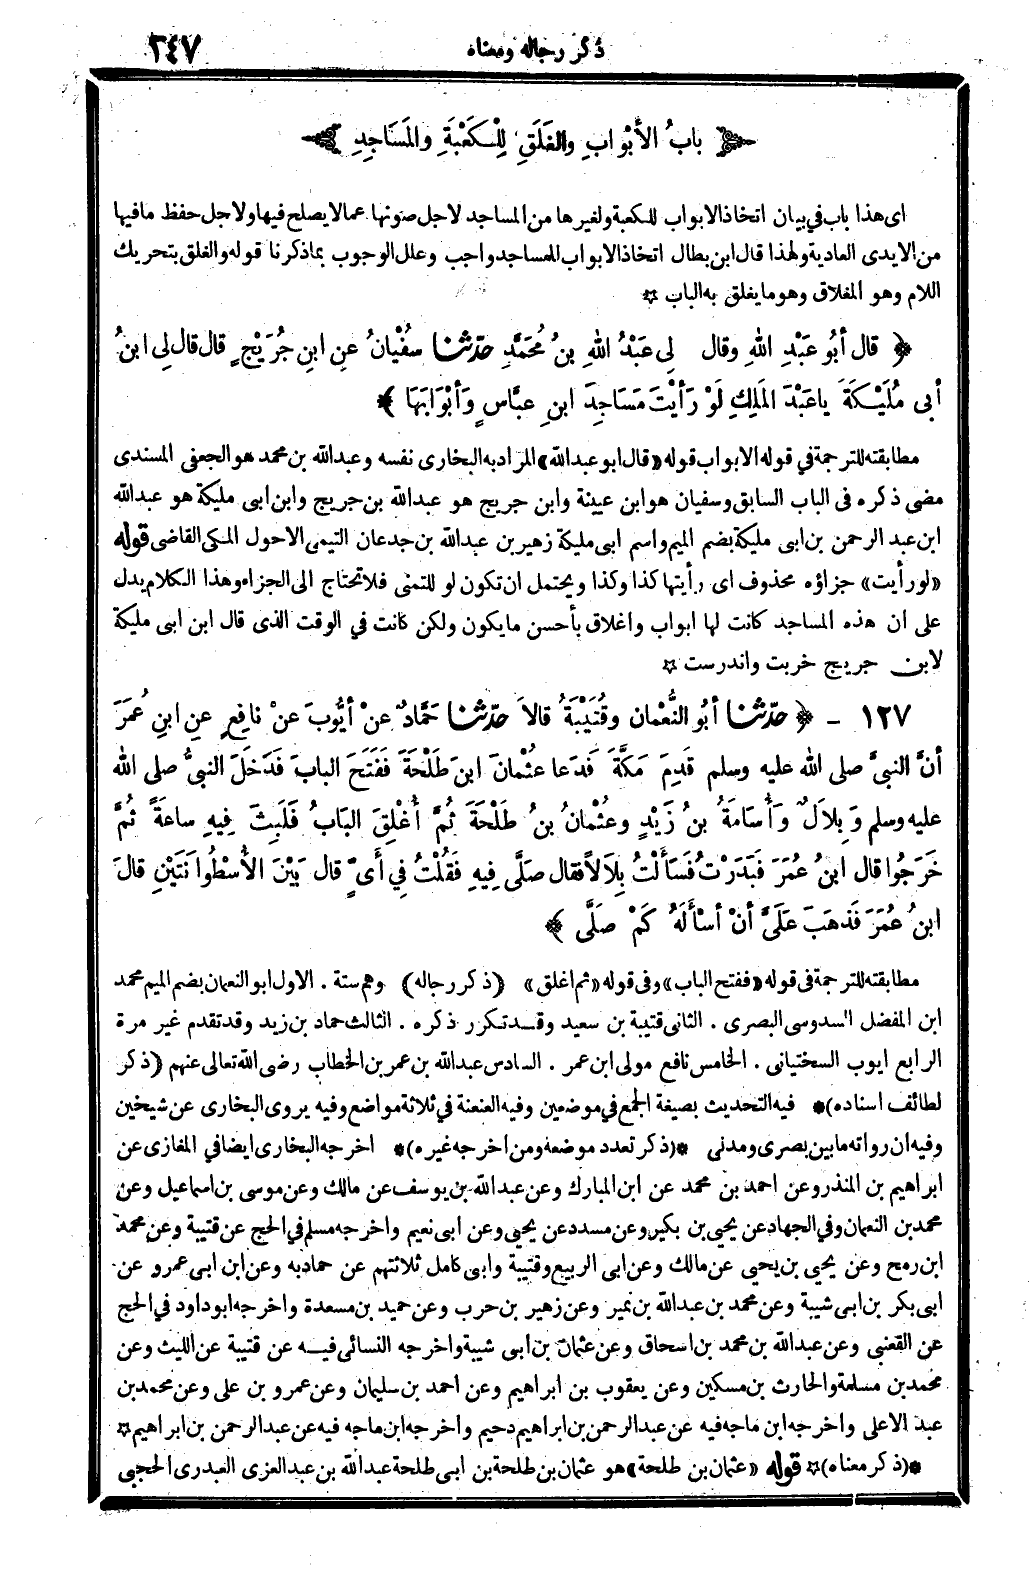 ذكر رجاله ومعناه
٢٤٧
بابُ الأَبْوابِ والغَلَقِ لِلْكَعْبَةِ والمَسَاجِدِ
اى هذا باب في بيان اتخاذ الابواب للكعبة ولغيرها من المساجد لاجل صونها عما لا يصلح فيها ولاجل حفظ ما فيها
من الايدى العادية ولهذا قال ابن بطال اتخاذ الابواب للمساجد واجب وعلل الوجوب بما ذكرنا قوله والغلق بتحريك
اللام وهو المغلاق وهو ما يغلق به الباب ☆
﴿ قال أبُو عَبْدِ اللهِ وقال لِى عَبْدُ اللهِ بنُ مُحَمَّدٍ حدّثنا سفْيانُ عنِ ابنِ جُرَيْجٍ قال قال لِى ابنُ
أبى مُلَيْكَةَ ياعَبْدَ المَلِكِ لَوْ رَأَيْتَ مَسَاجِدَ ابنِ عبَّاسٍ وَأبْوَابَهَا ﴾
مطابقته للترجمة في قوله الابواب قوله «قال ابو عبدالله» المراد به البخارى نفسه وعبدالله بن محمد هو الجعفى المسندى
مضى ذكره فى الباب السابق وسفيان هو ابن عيينة وابن جريج هو عبدالله بن جريج وابن ابى مليكة هو عبدالله
ابن عبد الرحمن بن ابى مليكة بضم الميم واسم ابى مليكة زهير بن عبدالله بن جدعان التيمى الاحول المكى القاضى قوله
«لو رأيت» جزاؤه محذوف اى رأيتها كذا وكذا ويحتمل ان تكون لو للتمنى فلا تحتاج الى الجزاء وهذا الكلام يدل
على ان هذه المساجد كانت لها ابواب واغلاق بأحسن ما يكون ولكن كانت في الوقت الذى قال ابن ابى مليكة
لابن جريج خربت واندرست ☆
١٢٧ - ﴿ حدّثنا أبُو النُّعْمان وقُتَيْبَةُ قالاَ حدّثنا حَمَّادٌ عنْ أيُّوبَ عنْ نافِعٍ عنِ ابنِ عُمَرَ
أنَّ النبيَّ صلى الله عليه وسلم قَدِمَ مَكَّةَ فَدَعا عثْمانَ ابنَ طَلْحَةَ فَفَتَحَ البابَ فَدَخَلَ النبيُّ صلى الله
عليه وسلم وَبِلاَلٌ وَأُسَامَةُ بنُ زَيْدٍ وعثْمانُ بنُ طَلْحَةَ ثُمَّ أُغْلِقَ البَابُ فَلَبِثَ فِيهِ ساعَةً ثُمَّ
خَرَجُوا قال ابنُ عُمَرَ فَبَدَرْتُ فَسَأَلْتُ بِلاَلاً فقال صَلَّى فِيهِ فَقُلْتُ فِي أَيٍّ قال بَيْنَ الأُسْطُوانَتَيْنِ قالَ
ابنُ عُمَرَ فَذَهَبَ عَلَىَّ أنْ أسْأَلَهُ كَمْ صَلَّى ﴾
مطابقته للترجمة فى قوله «ففتح الباب» وفى قوله «ثم اغلق» (ذكر رجاله) وهم ستة . الاول ابو النعمان بضم الميم محمد
ابن المفضل السدوسى البصرى . الثانى قتيبة بن سعيد وقد تكرر ذكره . الثالث حماد بن زيد وقد تقدم غير مرة
الرابع ايوب السختيانى . الخامس نافع مولى ابن عمر . السادس عبدالله بن عمر بن الخطاب رضى الله تعالى عنهم (ذكر
لطائف اسناده)* فيه التحديث بصيغة الجمع في موضعين وفيه العنعنة في ثلاثة مواضع وفيه يروى البخارى عن شيخين
وفيه ان رواته ما بين بصرى ومدنى *(ذكر تعدد موضعه ومن اخرجه غيره)* اخرجه البخارى ايضا في المغازى عن
ابراهيم بن المنذر وعن احمد بن محمد عن ابن المبارك وعن عبدالله بن يوسف عن مالك وعن موسى بن اسماعيل وعن
محمد بن النعمان وفي الجهاد عن يحيى بن بكير وعن مسدد عن يحيى وعن ابى نعيم واخرجه مسلم في الحج عن قتيبة وعن محمد
ابن رمح وعن يحيى بن يحيى عن مالك وعن ابى الربيع وقتيبة وابى كامل ثلاثتهم عن حماد به وعن ابن ابى عمرو عن
ابى بكر بن ابى شيبة وعن محمد بن عبدالله بن نمير وعن زهير بن حرب وعن حميد بن مسعدة واخرجه ابو داود في الحج
عن القعنبى وعن عبدالله بن محمد بن اسحاق وعن عثمان بن ابى شيبة واخرجه النسائى فيه عن قتيبة عن الليث وعن
محمد بن مسلمة والحارث بن مسكين وعن يعقوب بن ابراهيم وعن احمد بن سليمان وعن عمرو بن على وعن محمد بن
عبد الاعلى واخرجه ابن ماجه فيه عن عبد الرحمن بن ابراهيم دحيم واخرجه ابن ماجه فيه عن عبد الرحمن بن ابراهيم ☆
*(ذكر معناه)☆ قوله «عثمان بن طلحة» هو عثمان بن طلحة بن ابى طلحة عبدالله بن عبد العزى العبدرى الحجبى